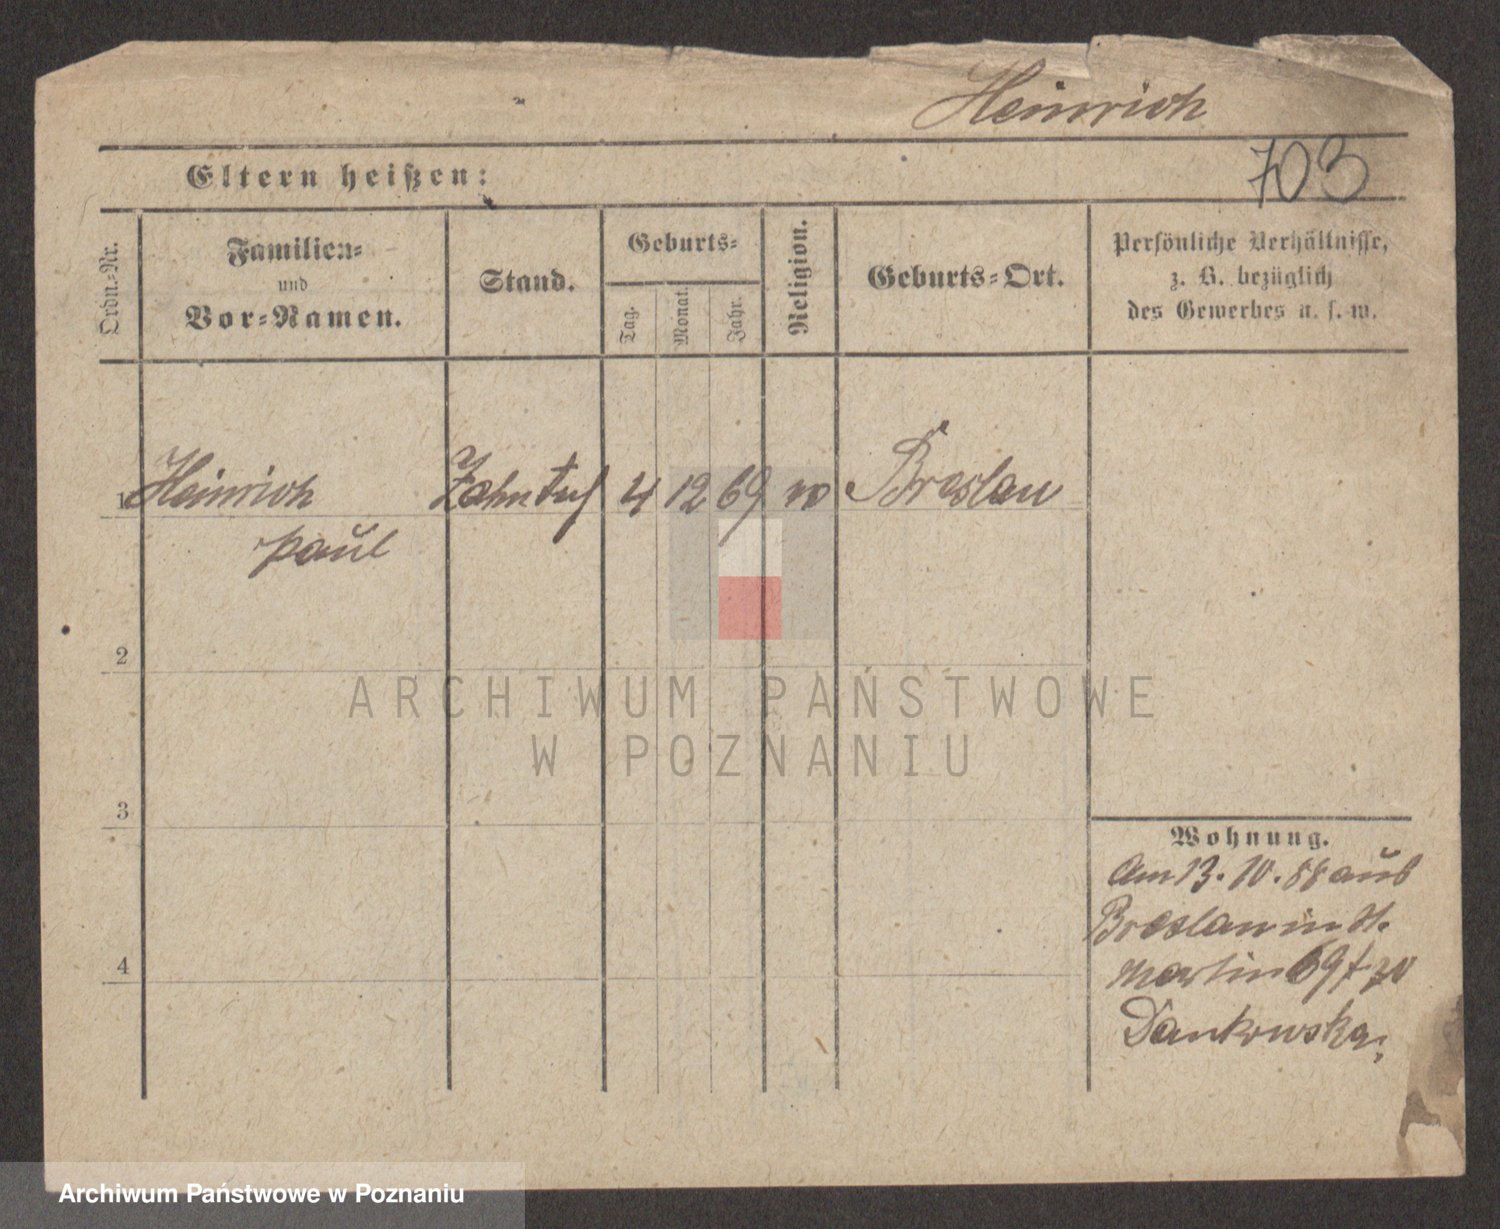 Heinrich
703
Eltern heißen:
Ordn.-Nr.
Familien-
und
Vor-Namen.
Stand.
Geburts-
Tag.
Monat.
Jahr.
Religion.
Geburts-Ort.
Persönliche Verhältnisse,
z. B. bezüglich
des Gewerbes u. s. w.
1 Heinrich 4 12 69 Breslau
Paul
2
3
4
Wohnung.
Am 13. 10. 88 aus
Breslau in St.
Martin 69
Dankowska
ARCHIWUM PAŃSTWOWE
W POZNANIU
Archiwum Państwowe w Poznaniu